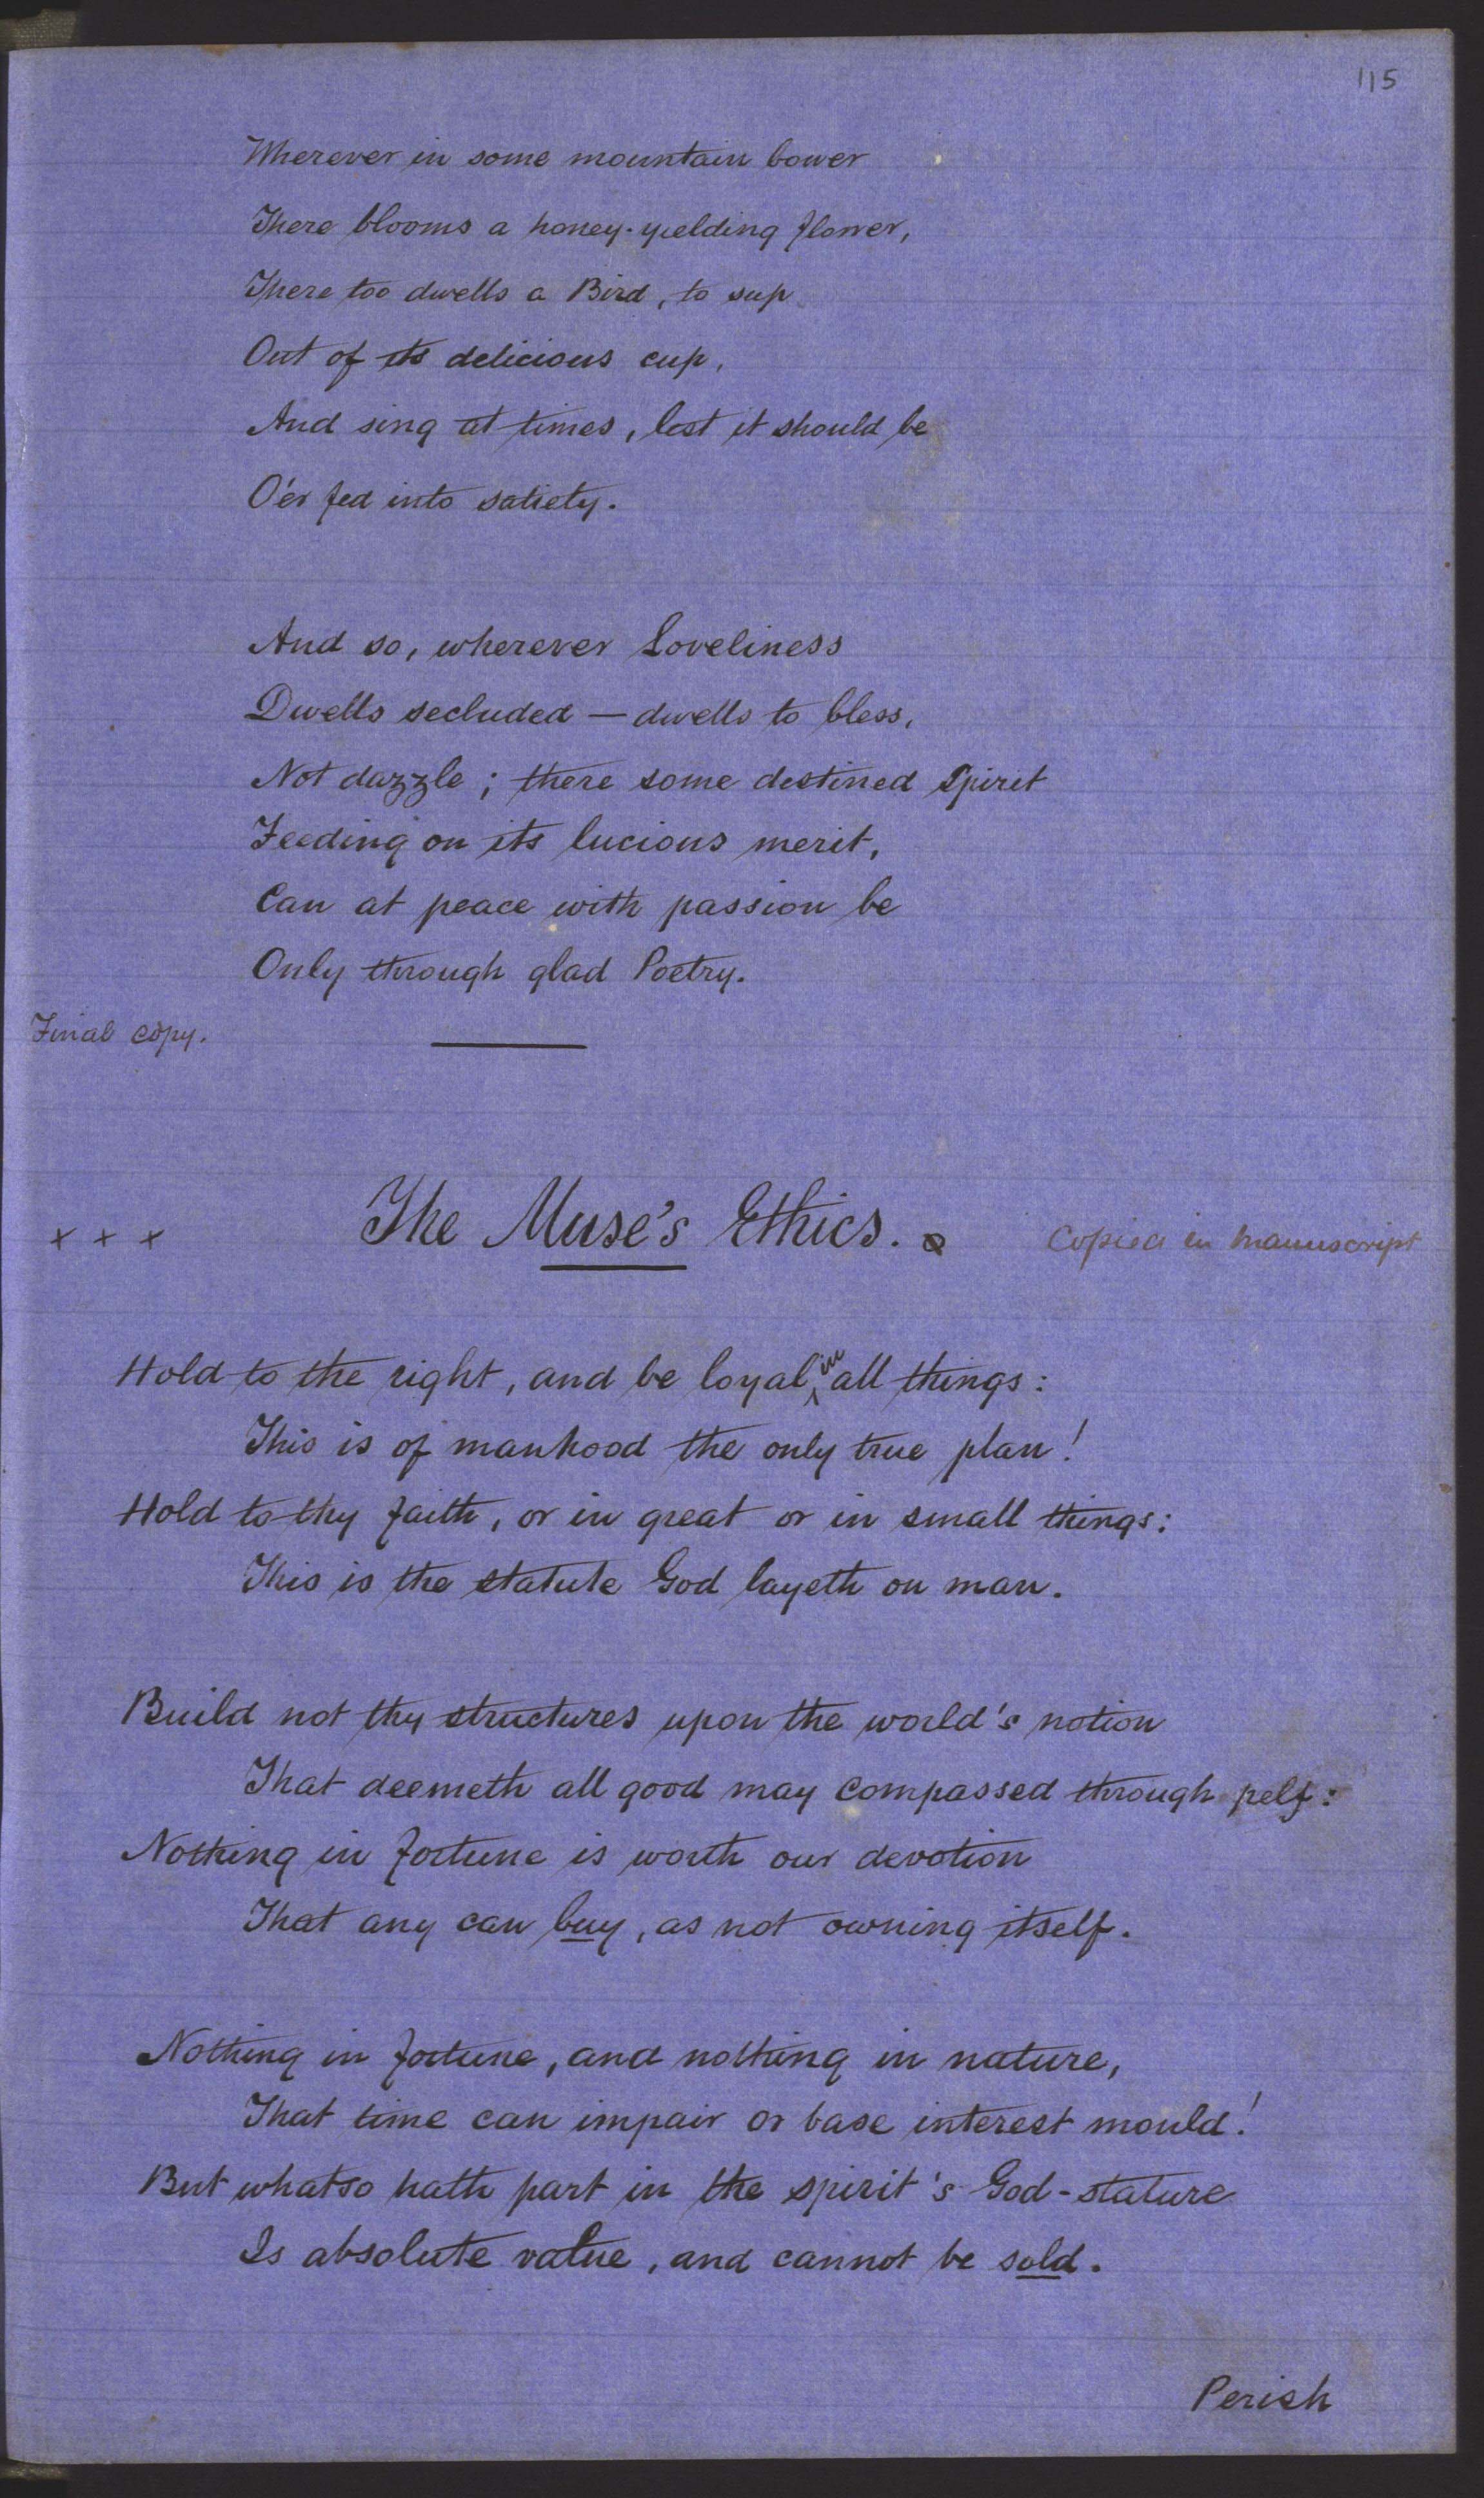 115
Wherever in some mountain bower
There blooms a honey-yielding flower,
There too dwells a Bird, to sup
Out of its delicious cup,
And sing at times, lest it should be
O'er fed into satiety.
And so, wherever Loveliness
Dwells secluded — dwells to bless,
Not dazzle; there some destined Spirit
Feeding on its lucious merit,
Can at peace with passion be
Only through glad Poetry.
Final copy.
+ + + The Muse's Ethics. Copied in manuscript
Hold to the right, and be loyal in all things:
This is of manhood the only true plan!
Hold to thy faith, or in great or in small things:
This is the statute God layeth on man.
Build not thy structures upon the world's notion
That deemeth all good may compassed through pelf:
Nothing in fortune is worth our devotion
That any can buy, as not owning itself.
Nothing in fortune, and nothing in nature,
That time can impair or base interest mould!
But whatso hath part in the spirit's God-stature
Is absolute value, and cannot be sold.
Perish